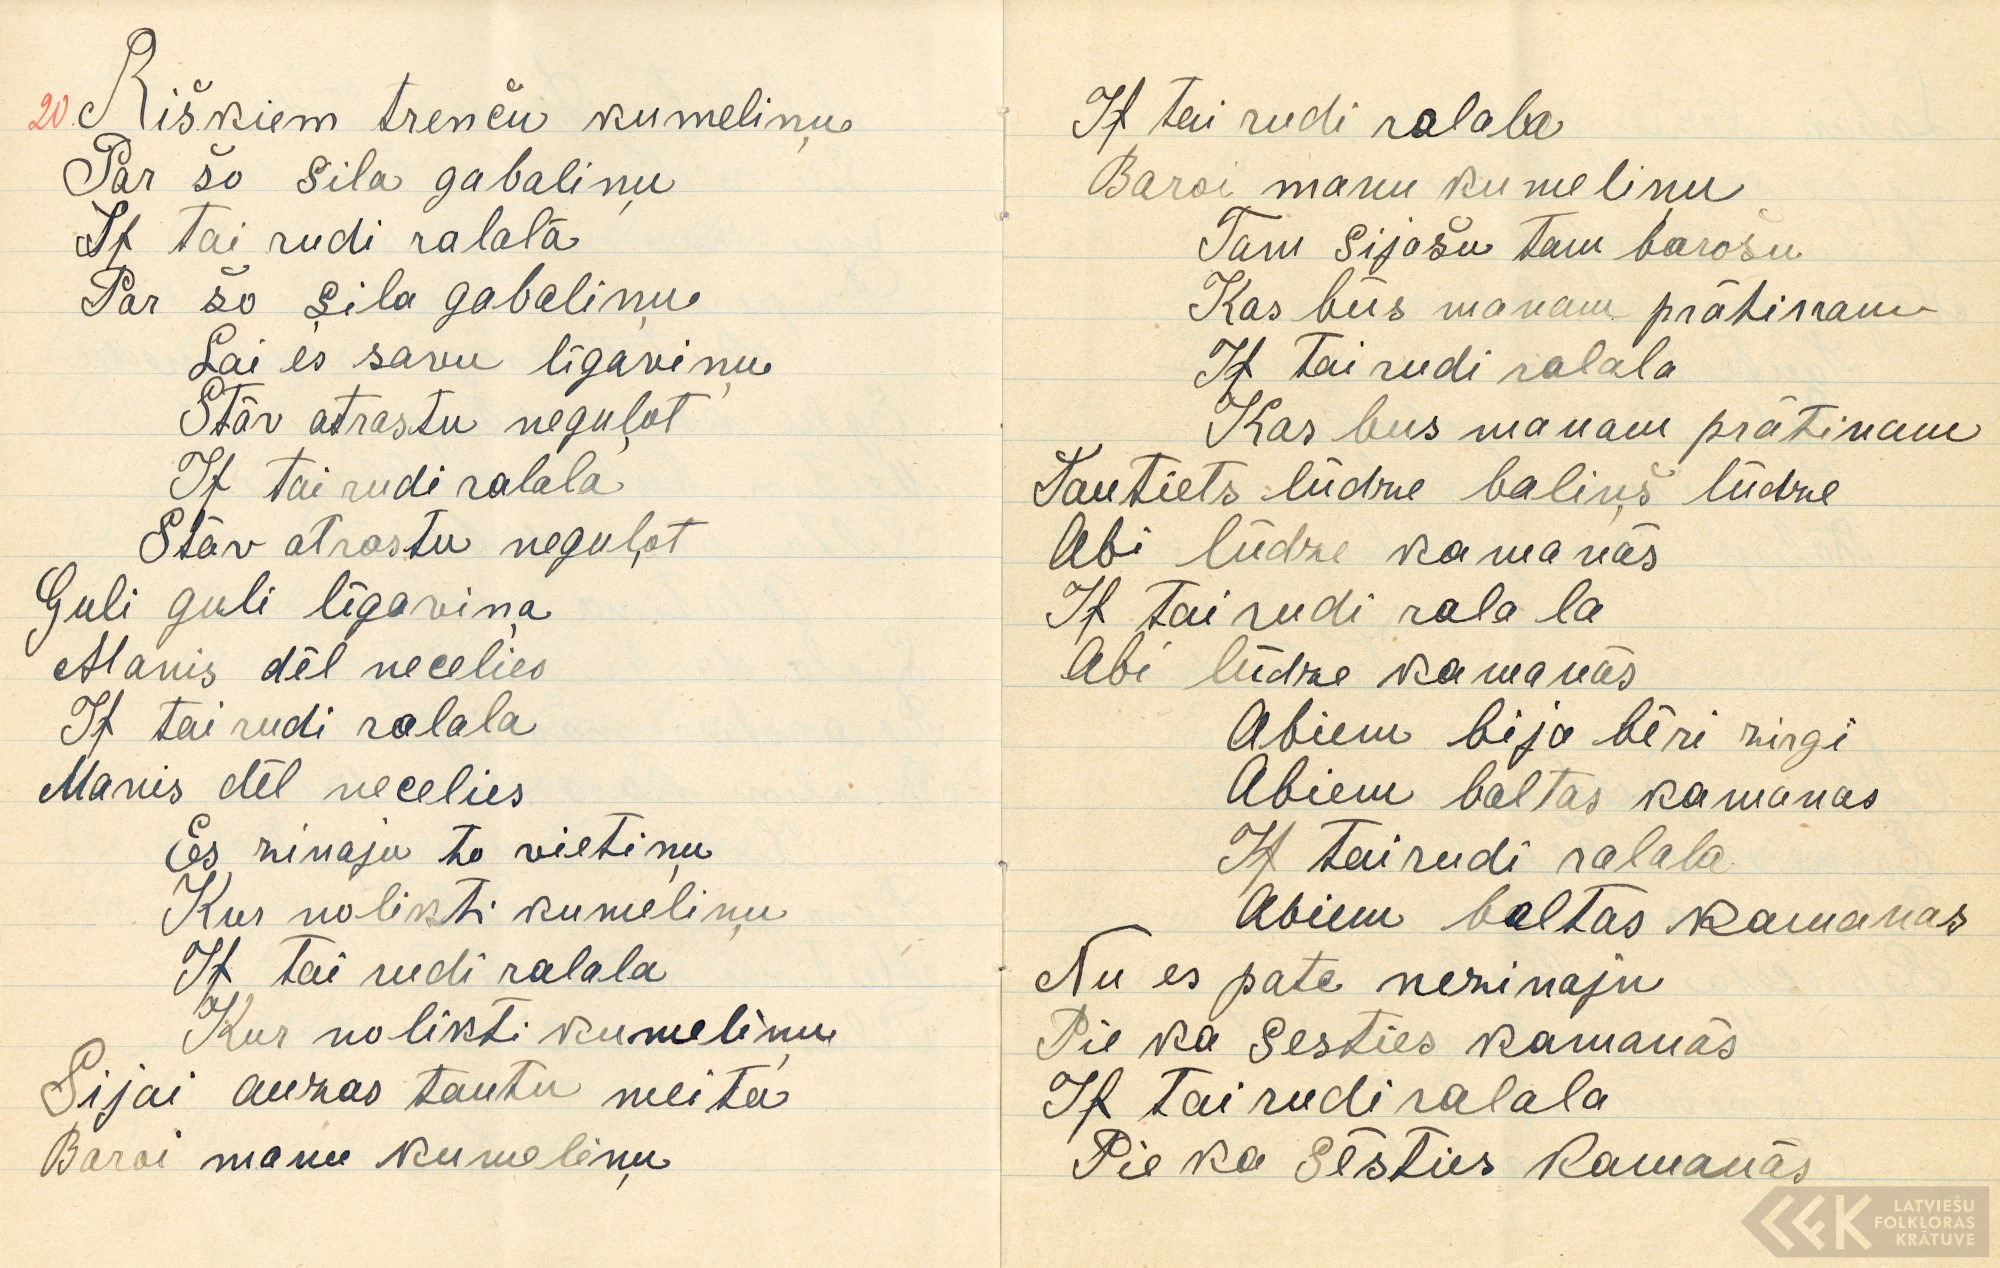 20. Riškiem trenču kumeliņu
Par šo sila gabaliņu
If tai rudi ralalā
Par šo sila gabaliņu
Lai es savu līgaviņu
Stāv atrastu neguļot
If tai rudi ralala
Stāv atrastu neguļot
Guli guli līgaviņa
Manis dēl necelies
If tai rudi ralala
Manis dēl necelies
Es zinaju to vietiņu
Kur nolikti kumeliņu
If tai rudi ralala
Kur nolikti kumeliņu
Sijai auzas tautu meita
Baroi manu kumeliņu
If tai rudi ralala
Baroi manu kumeliņu
Tam sijašu tam barošu
Kas būs manam prātinam
If tai rudi ralala
Kas bus manam prātinam
Tautiets lūdze baliņš lūdze
Abi lūdze kamanās
If tai rudi rala la
Abi lūdze kamanās
Abiem bija bēri zirgi
Abiem baltas kamanas
If tai rudi ralala
Abiem baltas kamanas
Nu es pate nezinaju
Pie ka sesties kamanās
If tai rudi ralala
Pie ka sēsties kamanās
LATVIEŠU
FOLKLORAS
KRĀTUVE